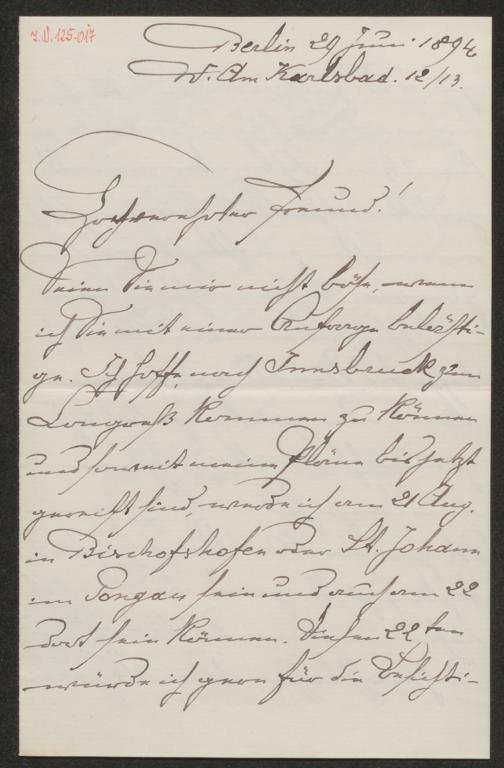 J.N. 125.017
Berlin 29 Juni 1894
W. Am Karlsbad. 12/13.
Hochverehrter Freund!
Seien Sie mir nicht böse, wenn
ich Sie mit einer Anfrage belästi-
ge. Ich hoffe, nach Innsbruck zum
Congreß kommen zu können
und soweit meine Pläne bis jetzt
gereift sind, werde ich am 21 Aug.
in Bischofshofen oder St. Johann
im Pongau sein und auch am 22
dort sein können. Diesen 22ten
würde ich gern für die Besichti-